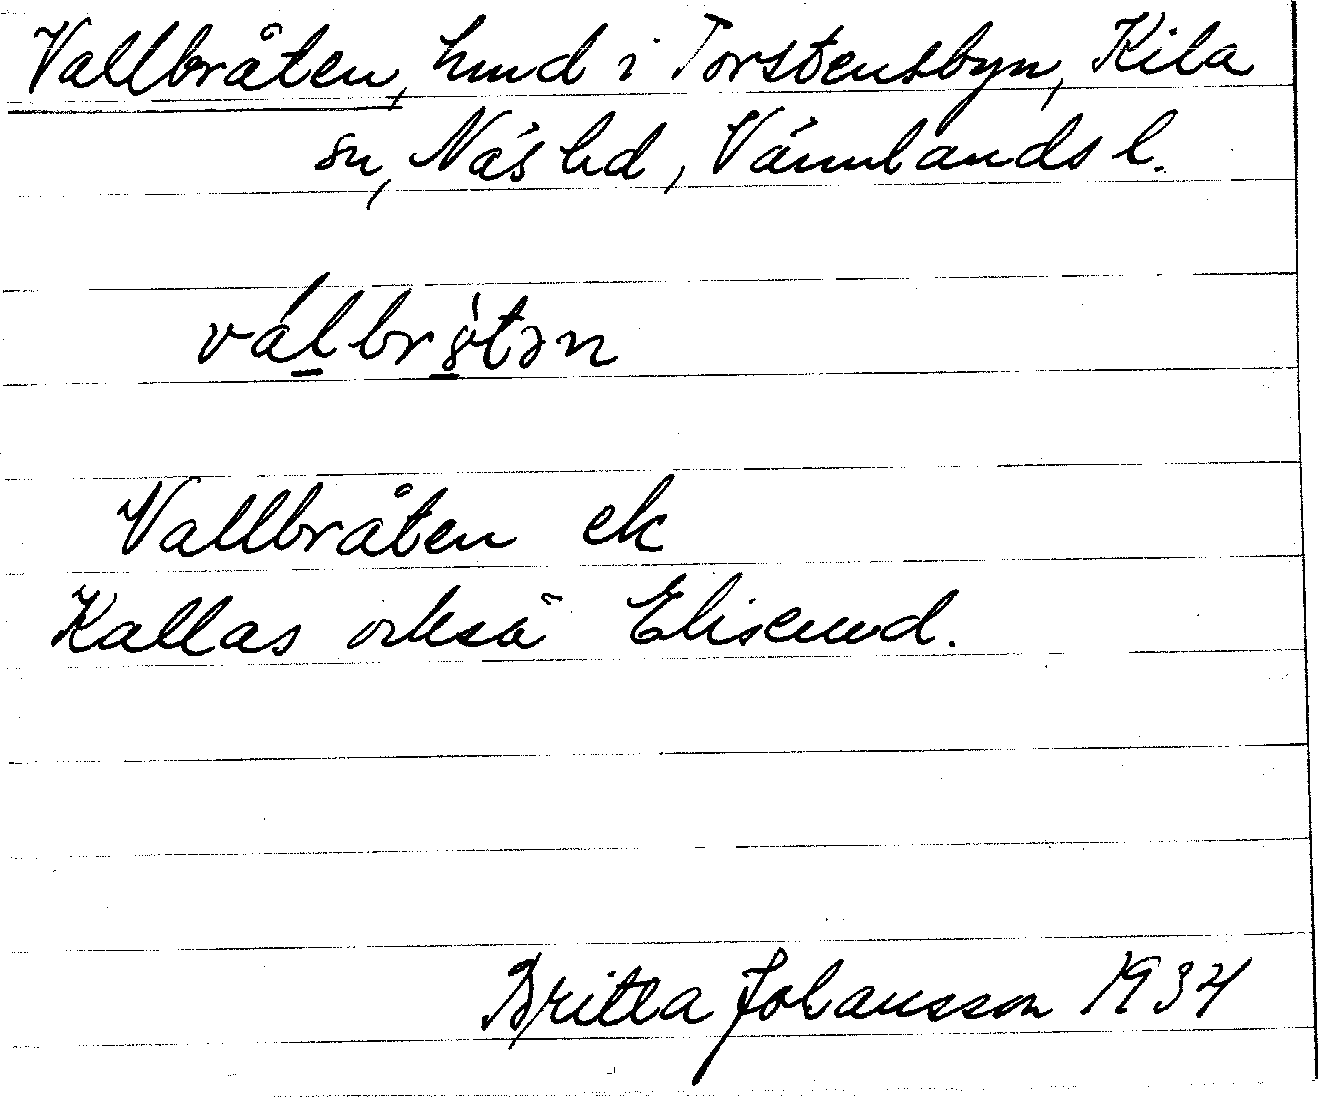 Vallbråten, hmd i Torstensbyn, Kila
sn, Näs hd, Värmlands l.
Vallbråten ek
Kallas också Eliserud.
Britta Johansson 1934